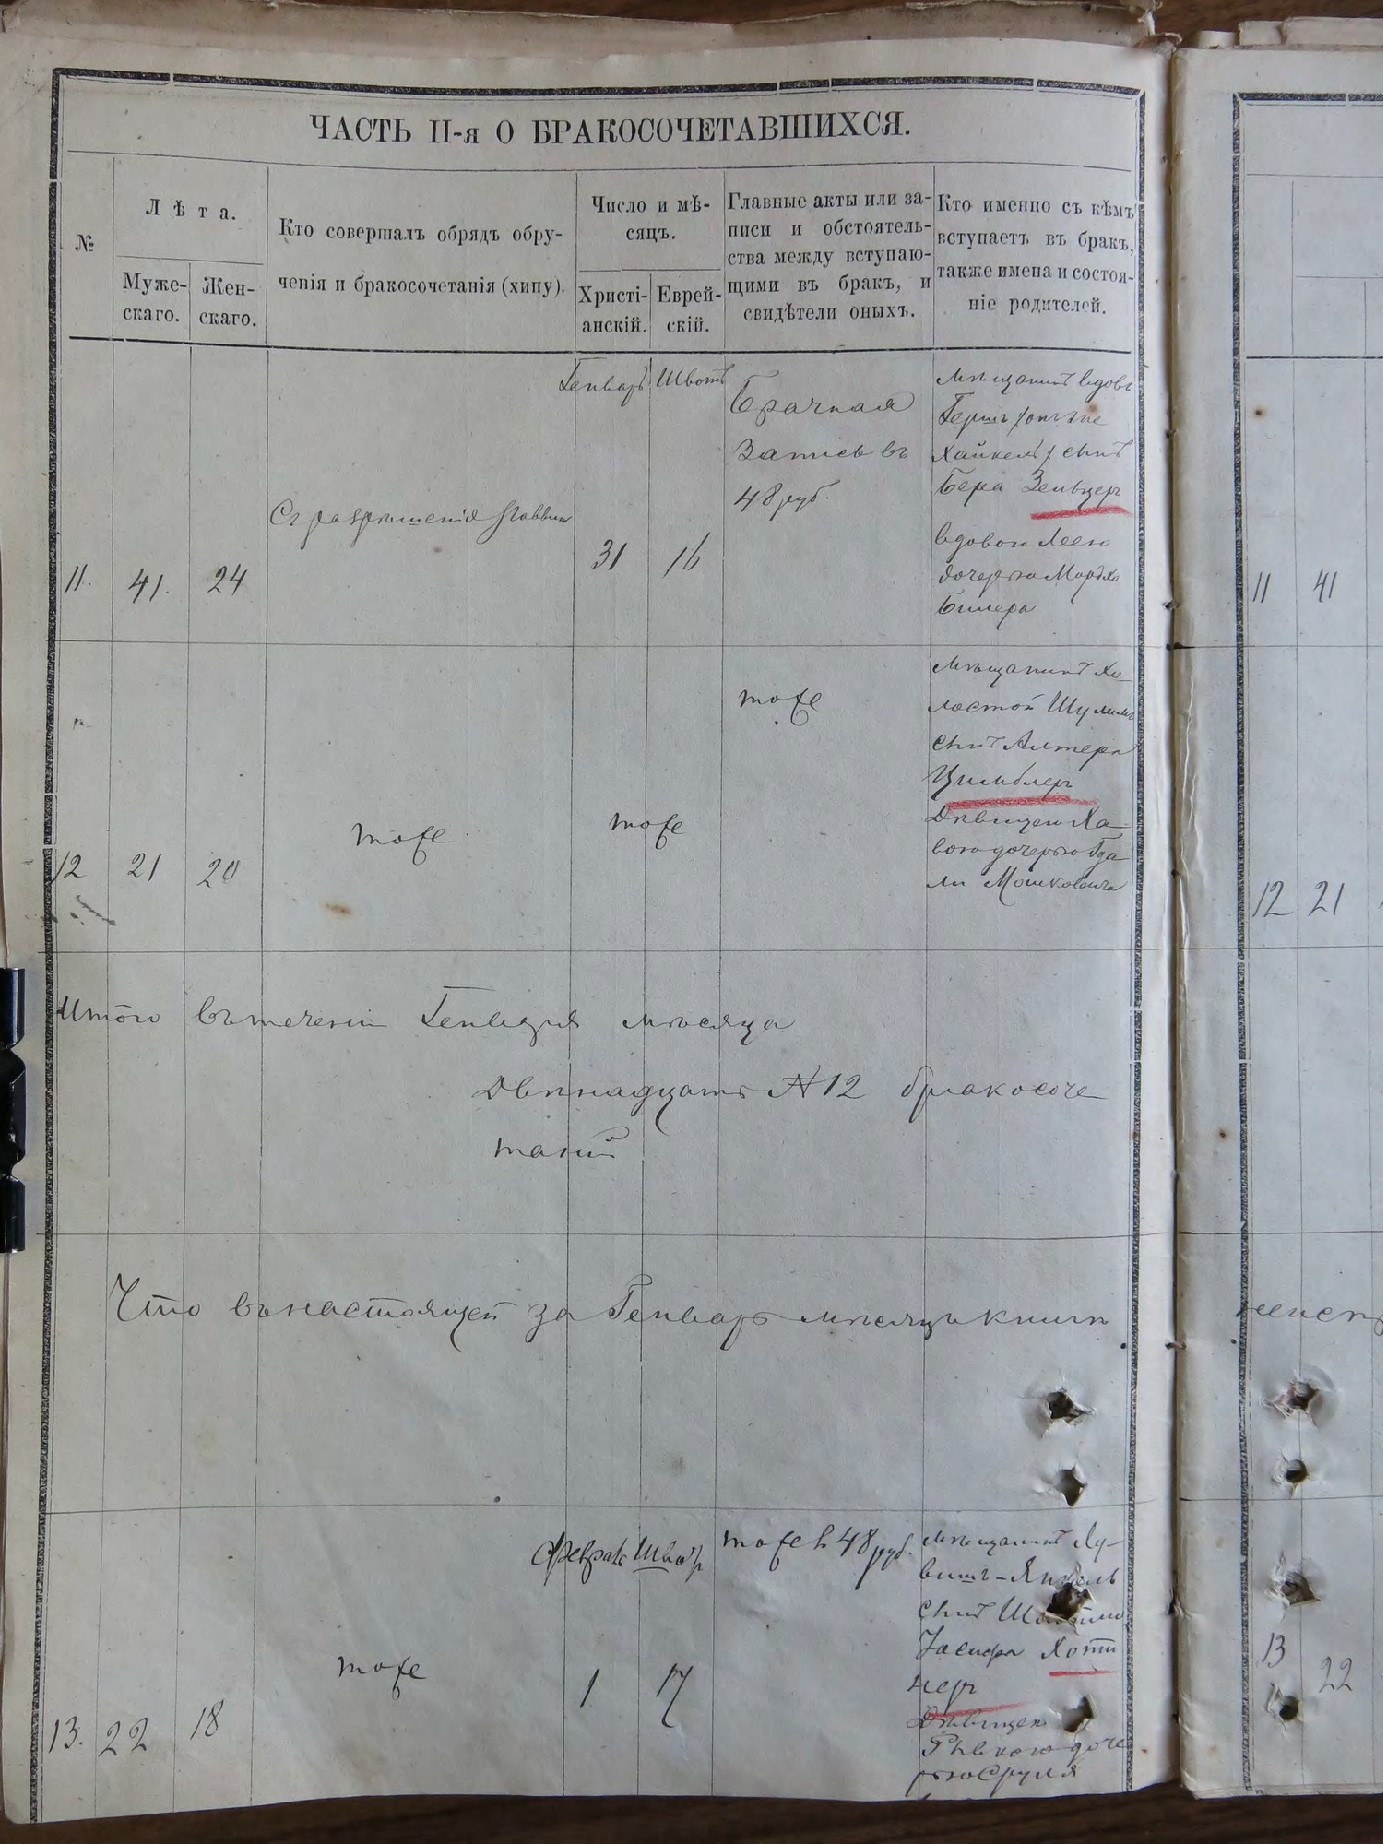 ЧАСТЬ II-я О БРАКОСОЧЕТАВШИХСЯ.
№
Лѣта.
Мужескаго.
Женскаго.
Кто совершалъ обрядъ обру-
ченія и бракосочетанія (хипу)
Число и мѣ-
сяцъ.
Христі-
анскій.
Еврей-
скій.
Главные акты или за-
писи и обстоятель-
ства между вступаю-
щими въ бракъ, и
свидѣтели оныхъ.
Кто именно съ кѣмъ
вступаетъ въ бракъ,
также имена и состоя-
ніе родителей.
11. 41. 24
Съ разрѣшенія
Генварь Швотъ
31 16
Брачная
Запись въ
48 руб.
мѣщанинъ вдовъ
Гершъ
Хайкелъ сынъ
Бера Зельцеръ
вдовою Леею
дочерью
12 21 20
тоже
тоже
тоже
мѣщанинъ хо-
лостой
сынъ Алтера
Цимблеръ
Дѣвицею Ха-
вою дочерью Гда-
ли Мошковича
Итого въ теченіи Генваря мѣсяца
Двѣнадцать № 12 бракосоче
таній
Что въ настоящей за Генварь мѣсяцъ книгѣ
13. 22 18
тоже
1 17
тоже в 48 руб.
мѣщанинъ
сынъ
Хоти
неръ
Дѣвицею
Рывкою доче
рью Сруля
11 41
12 21
13 22